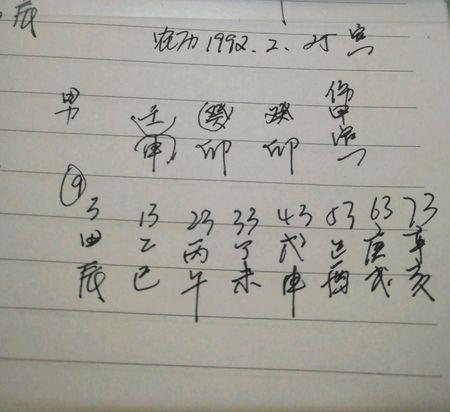 辰
农历1992.2.25 寅
伤
男 壬 癸 癸 甲
申 卯 卯 寅
3 13 23 33 43 53 63 73
甲 乙 丙 丁 戊 己 庚 辛
辰 巳 午 未 申 酉 戌 亥